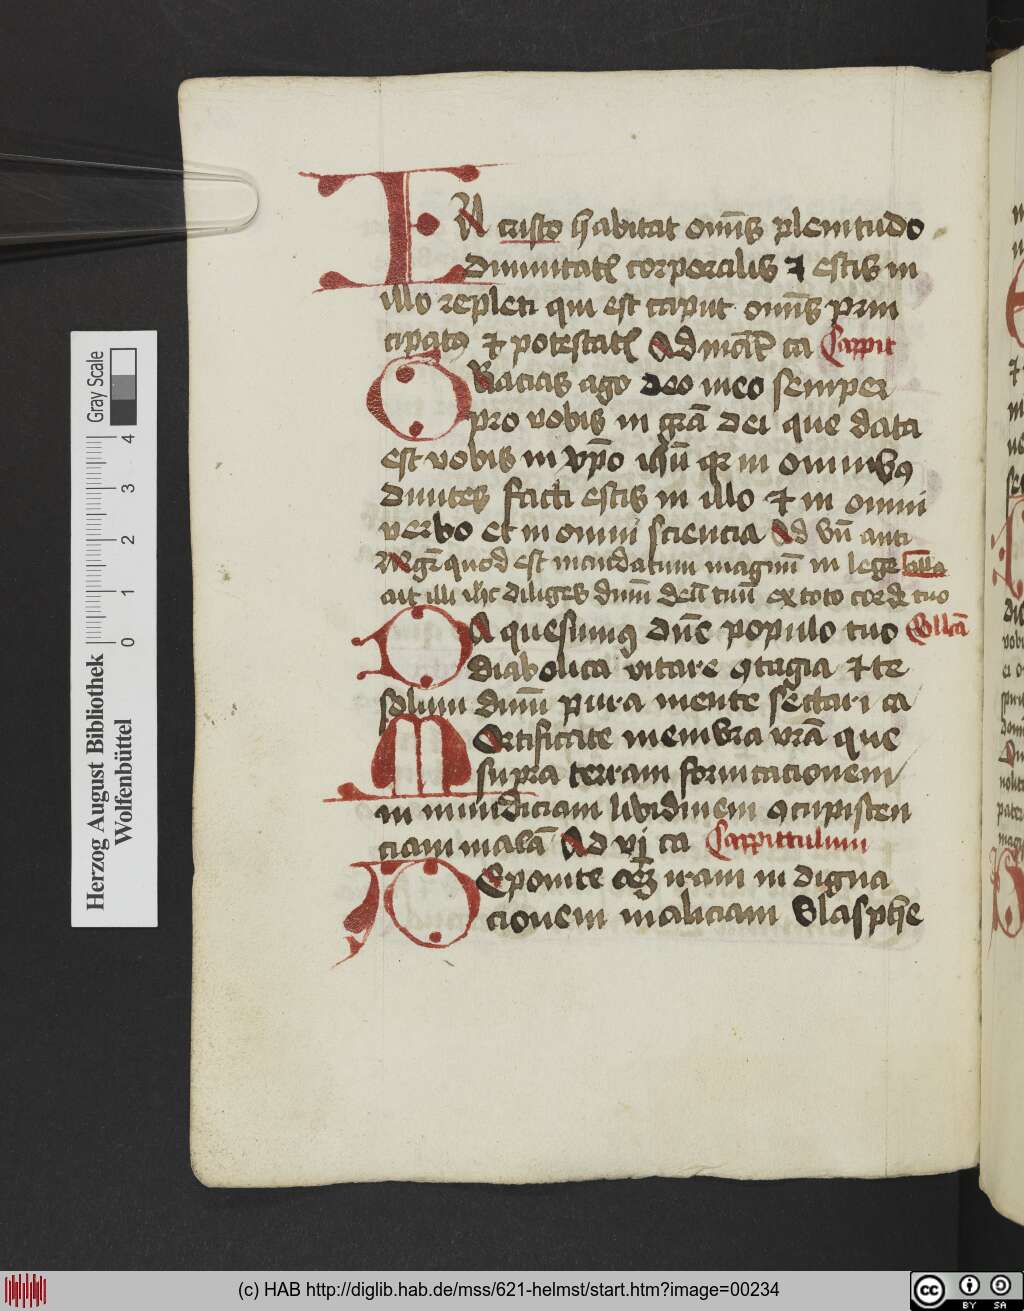 IN cristo habitat om̄is plenitudo
diuinitatꝭ corporalis ⁊ estis in
illo repleti qui est caput om̄is prin
cipatꝰ ⁊ potestatꝭ Ad ca Cappit
Gracias ago deo meo semper
pro vobis in grā dei que data
est vobis in xp̄o ihū qꝛ in omnibꝰ
diuites facti estis in illo ⁊ in omni
verbo et in omni sciencia Ad bn̄ anti
quod est mandatum magnū in lege illa
ait illi ihc diliges dnm̄ deū tuū ex toto corde tuo
DA quesumꝰ dn̄e populo tuo Collcā
diabolica vitare ꝯtagia ⁊ te
solum dnm̄ pura mente sectari ca
Mortificate membra vrā que
supra terram fornicacionem
in mundiciam libidinem ꝯcupiscen
ciam malā Ad vj ca Cappittulum
Deponite iram indigna
cionem maliciam blasphe
Herzog August Bibliothek
Wolfenbüttel
0 1 2 3 4
Gray Scale
(c) HAB http://diglib.hab.de/mss/621-helmst/start.htm?image=00234
cc BY SA